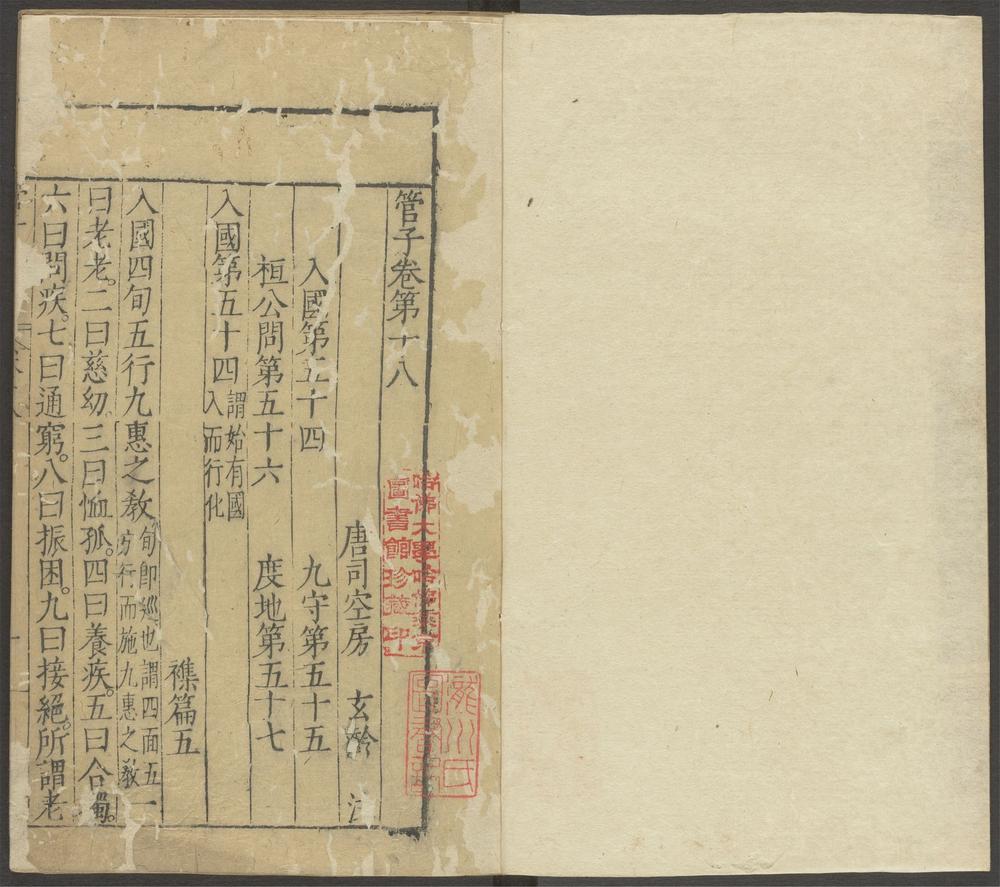 管子卷第十八
唐司空房 玄齡 注
入國第五十四 九守第五十五
桓公問第五十六 度地第五十七
入國第五十四 謂始有國
入而行化
襍篇五
入國四旬五行九惠之教 旬即巡也謂四面五
方行而施九惠之教 一
曰老老。二曰慈幼。三曰恤孤。四曰養疾。五曰合獨。
六曰問疾。七曰通窮。八曰振困。九曰接絕。所謂老
哈佛大學哈佛燕京
圖書館珍藏印